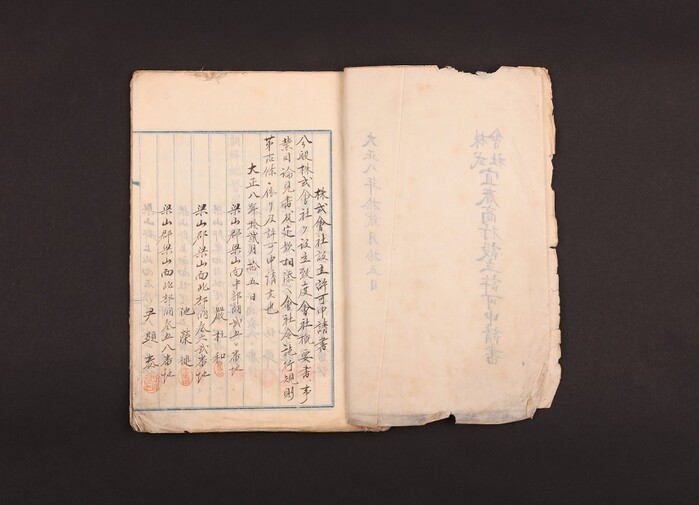 株式會社設立許可申請書
今般株式會社ヲ設立致度會社概要書、事
業目論見書及定款相添ヘ會社令施行規則
第 條ニ依リ及許可申請候也
大正八年拾貳月拾五日
梁山郡梁山面中部洞 番地
嚴柱和
梁山郡梁山面北部洞 番地
池榮
梁山郡梁山面北部洞 五八番地
尹顯泰
株式
會社宜春商行設立許可申請書
大正八年拾貳月拾五日